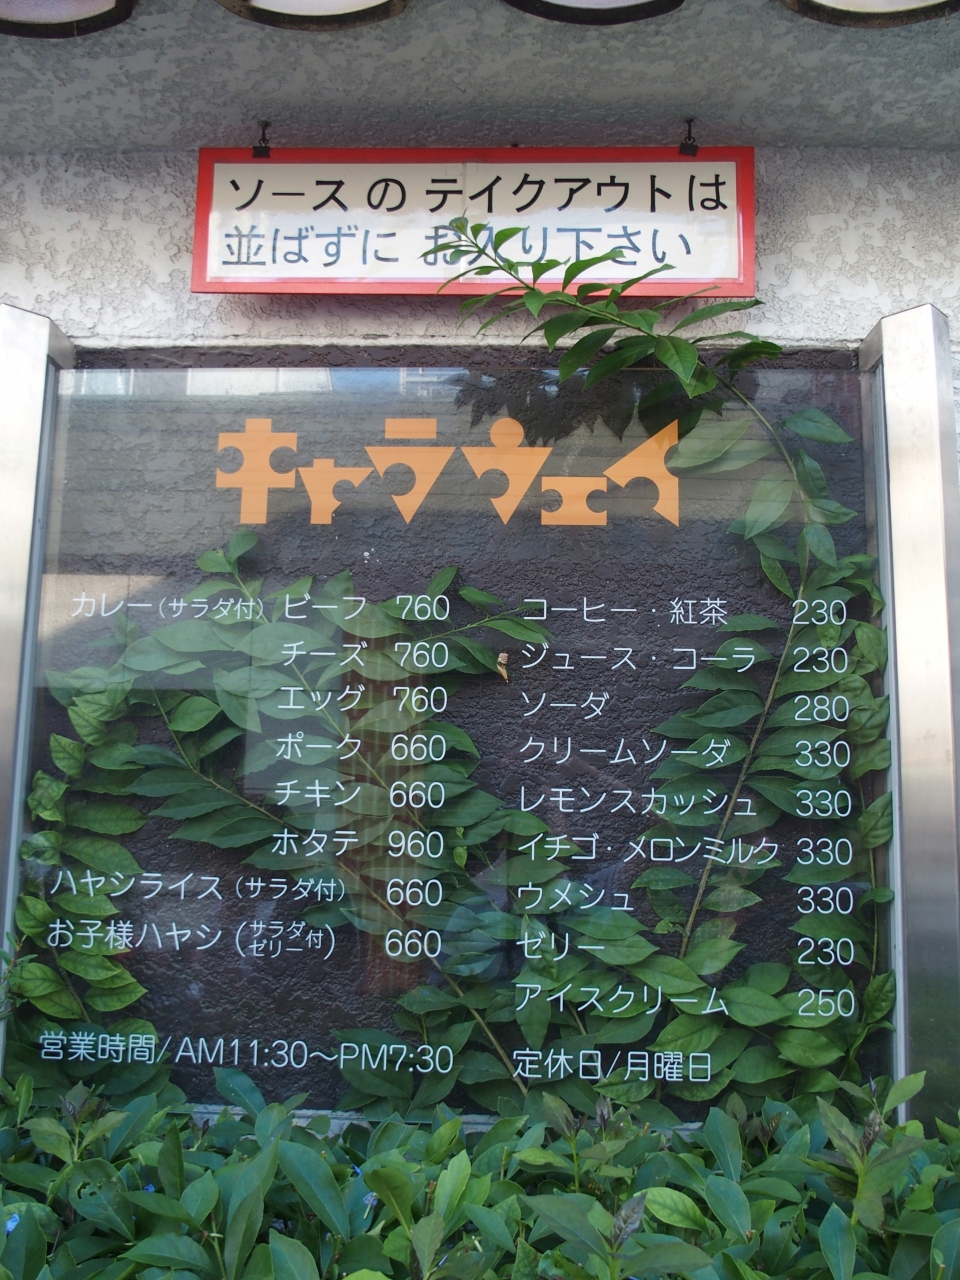 ソース の テイクアウトは
並ばずに お入り下さい
キャラウェイ
カレー(サラダ付) ビーフ 760
チーズ 760
エッグ 760
ポーク 660
チキン 660
ホタテ 960
ハヤシライス (サラダ付) 660
お子様ハヤシ (サラダ ゼリー付) 660
営業時間/AM11:30〜PM7:30
コーヒー・紅茶 230
ジュース・コーラ 230
ソーダ 280
クリームソーダ 330
レモンスカッシュ 330
イチゴ・メロンミルク 330
ウメシュ 330
ゼリー 230
アイスクリーム 250
定休日/月曜日